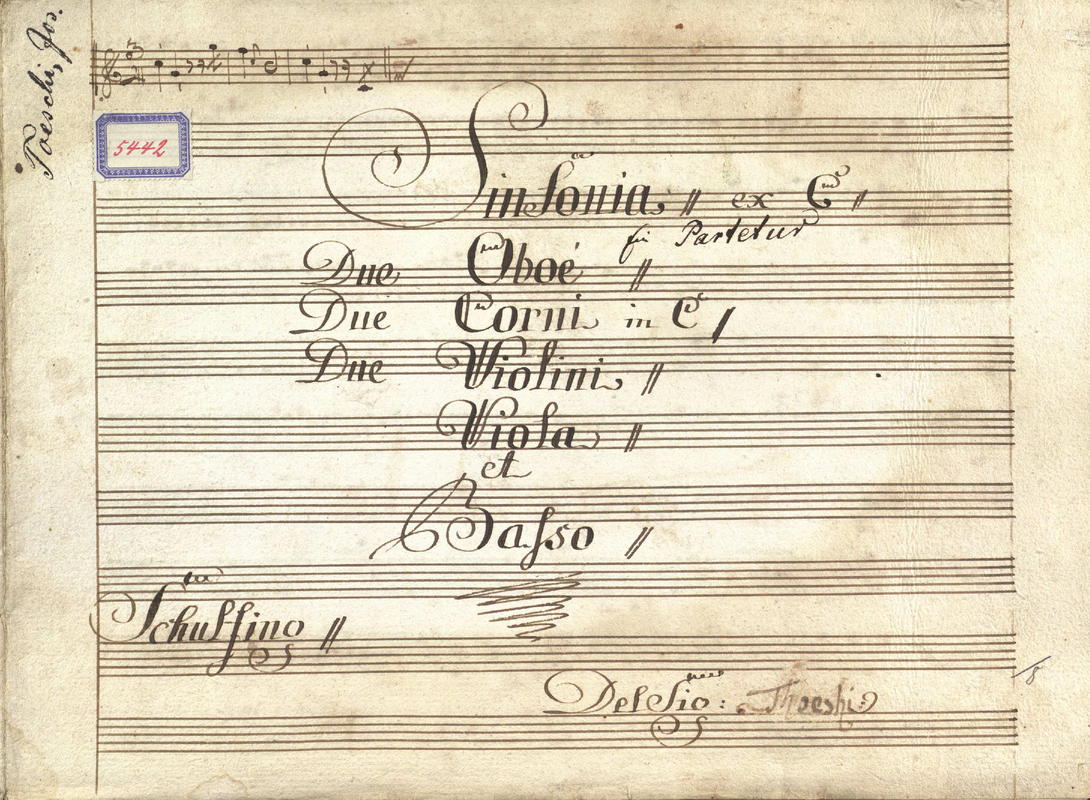 Toeschi, Jos.
5442
Sinfonia // ex C //
Partetur
Due Oboe //
Due Corni in C /
Due Violini //
Viola //
et
Basso //
Schuffino //
Del Sig: Thoeshi